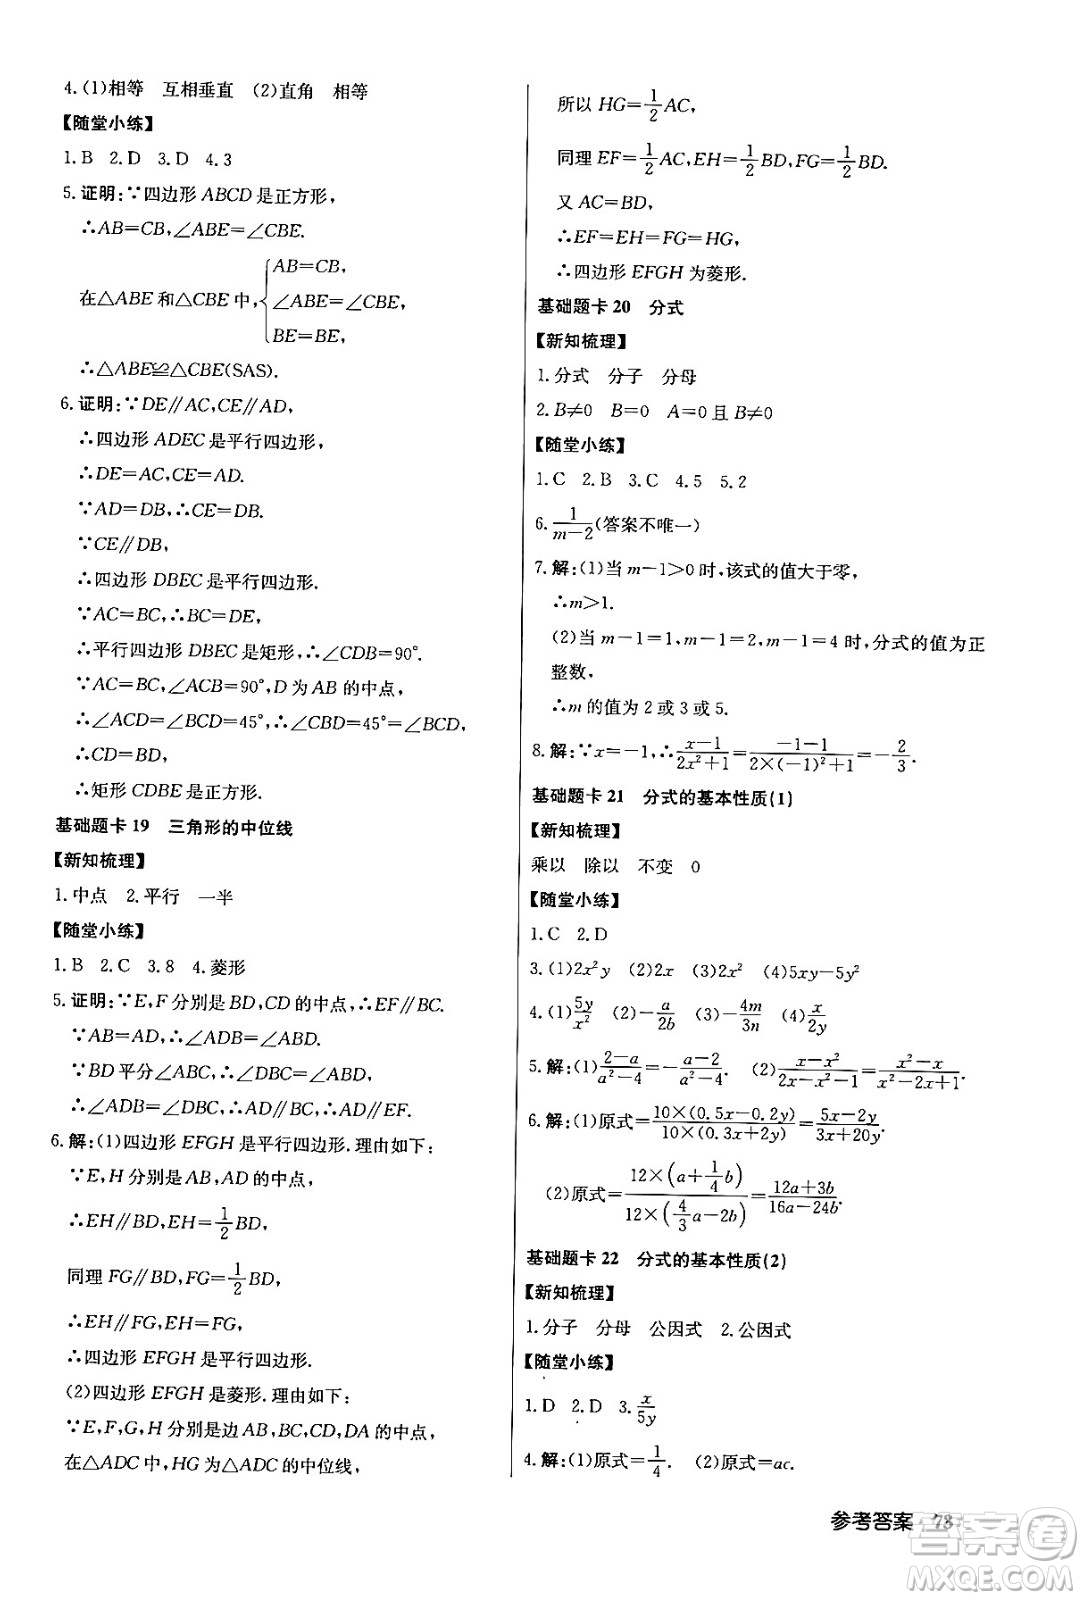 4.(1)相等　互相垂直　(2)直角　相等
【随堂小练】
1.B　2.D　3.D　4.3
5.证明:∵四边形 ABCD 是正方形，
∴AB=CB,∠ABE=∠CBE.
在△ABE 和△CBE 中,{AB=CB,
∠ABE=∠CBE,
BE=BE,
∴△ABE≌△CBE(SAS).
6.证明:∵DE∥AC,CE∥AD,
∴四边形 ADEC 是平行四边形，
∴DE=AC,CE=AD.
∵AD=DB,∴CE=DB.
∵CE∥DB,
∴四边形 DBEC 是平行四边形.
∵AC=BC,∴BC=DE,
∴平行四边形 DBEC 是矩形,∴∠CDB=90°.
∵AC=BC,∠ACB=90°,D 为 AB 的中点,
∴∠ACD=∠BCD=45°,∴∠CBD=45°=∠BCD,
∴CD=BD,
∴矩形 CDBE 是正方形.
基础题卡 19　三角形的中位线
【新知梳理】
1.中点　2.平行　一半
【随堂小练】
1.B　2.C　3.8　4.菱形
5.证明:∵E,F 分别是 BD,CD 的中点,∴EF∥BC.
∵AB=AD,∴∠ADB=∠ABD.
∵BD 平分∠ABC,∴∠ABD=∠DBC,
∴∠ADB=∠DBC,∴AD∥BC,∴AD∥EF.
6.解:(1)四边形 EFGH 是平行四边形.理由如下:
∵E,H 分别是 AB,AD 的中点,
∴EH∥BD,EH=1/2BD,
同理 FG∥BD,FG=1/2BD,
∴EH∥FG,EH=FG,
∴四边形 EFGH 是平行四边形.
(2)四边形 EFGH 是菱形.理由如下:
∵E,F,G,H 分别是边 AB,BC,CD,DA 的中点,
在△ADC 中,HG 为△ADC 的中位线,
所以 HG=1/2AC,
同理 EF=1/2AC,EH=1/2BD,FG=1/2BD.
又 AC=BD,
∴EF=EH=FG=HG,
∴四边形 EFGH 为菱形.
基础题卡 20　分式
【新知梳理】
1.分式　分子　分母
2.B≠0　B=0　A=0 且 B≠0
【随堂小练】
1.C　2.B　3.C　4.5　5.2
6.1/(m-2)(答案不唯一)
7.解:(1)当 m-1>0 时,该式的值大于零,
∴m>1.
(2)当 m-1=1,m-1=2,m-1=4 时,分式的值为正
整数,
∴m 的值为 2 或 3 或 5.
8.解:∵x=-1,∴(x-1)/(2x²+1)=(-1-1)/(2×(-1)²+1)=-2/3.
基础题卡 21　分式的基本性质(1)
【新知梳理】
乘以　除以　不变　0
【随堂小练】
1.C　2.D
3.(1)2x²y　(2)2x　(3)2x²　(4)5xy-5y²
4.(1)5y/x²　(2)-a/2b　(3)-4m/3n　(4)x/2y
5.解:(1)(2-a)/(a²-4)=-(a-2)/(a²-4).　(2)(x-x²)/(2x-x²-1)=(x²-x)/(x²-2x+1).
6.解:(1)原式=10×(0.5x-0.2y)/10×(0.3x+2y)=(5x-2y)/(3x+20y).
(2)原式=12×(a+1/4b)/12×(4/3a-2b)=(12a+3b)/(16a-24b).
基础题卡 22　分式的基本性质(2)
【新知梳理】
1.分子　分母　公因式　2.公因式
【随堂小练】
1.D　2.D　3.x/5y
4.解:(1)原式=1/4.　(2)原式=ac.
参考答案　78
答案圈
MXQE.COM